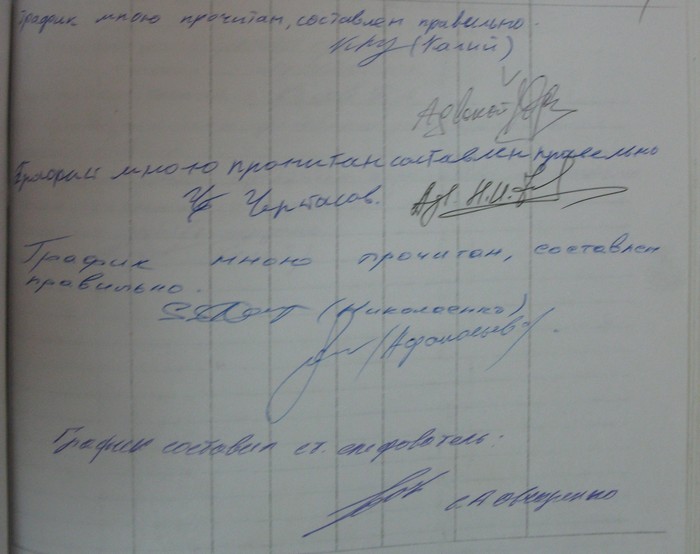 График мною прочитан, составлен правильно.
(Калий)
Адвокат
График мною прочитан составлен правельно
Черкасов.
График мною прочитан, составлен
правильно.
(Николаенко)
(Афанасьева)
График составил ст. следователь:
С.А. Овчаренко